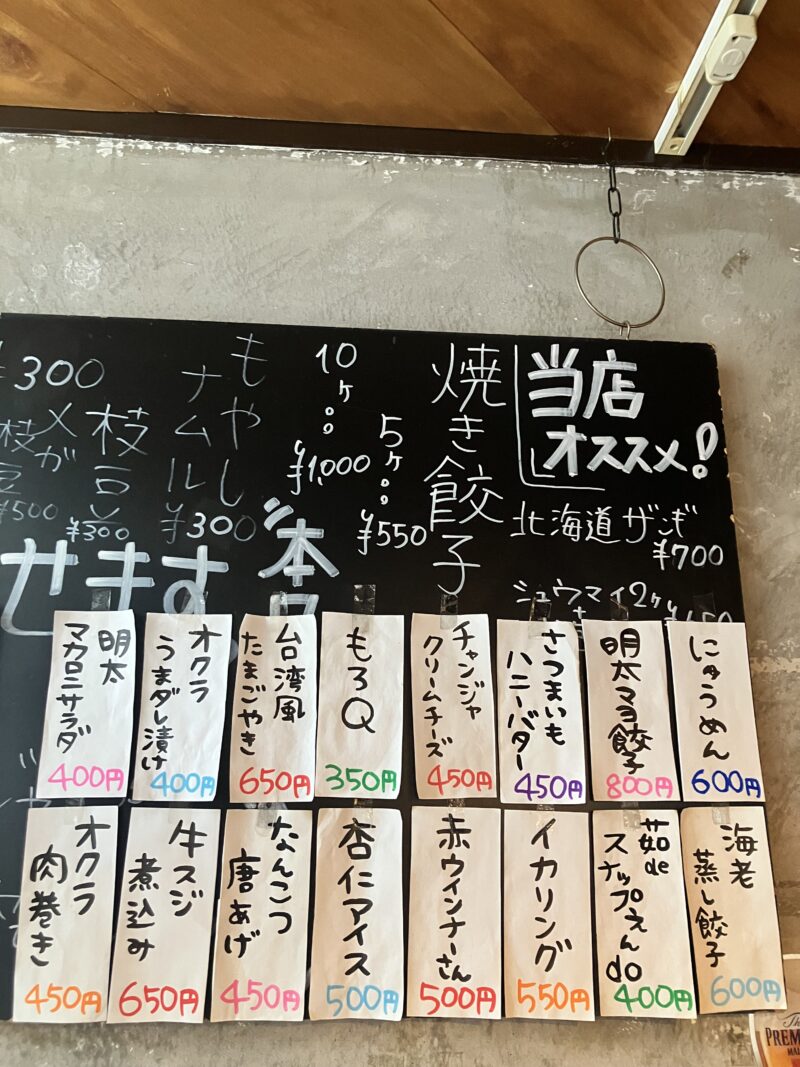 当店
オススメ!
北海道ザンギ
¥700
シュウマイ2ケ
焼き餃子
5ケ。。
¥550
10ケ。。
¥1,000
もやし
ナムル
¥300
枝豆
¥300
メガ
枝豆
¥500
¥300
本
せます
にゅうめん
600円
明太マヨ餃子
800円
さつまいも
ハニーバター
450円
チャンジャ
クリームチーズ
450円
もろQ
350円
台湾風
たまごやき
650円
オクラ
うまダレ漬け
400円
明太
マカロニサラダ
400円
海老
蒸し餃子
600円
茹de
スナップえんdo
400円
イカリング
550円
赤ウインナーさん
500円
杏仁アイス
500円
なんこつ
唐あげ
450円
牛スジ
煮込み
650円
オクラ
肉巻き
450円
PREM